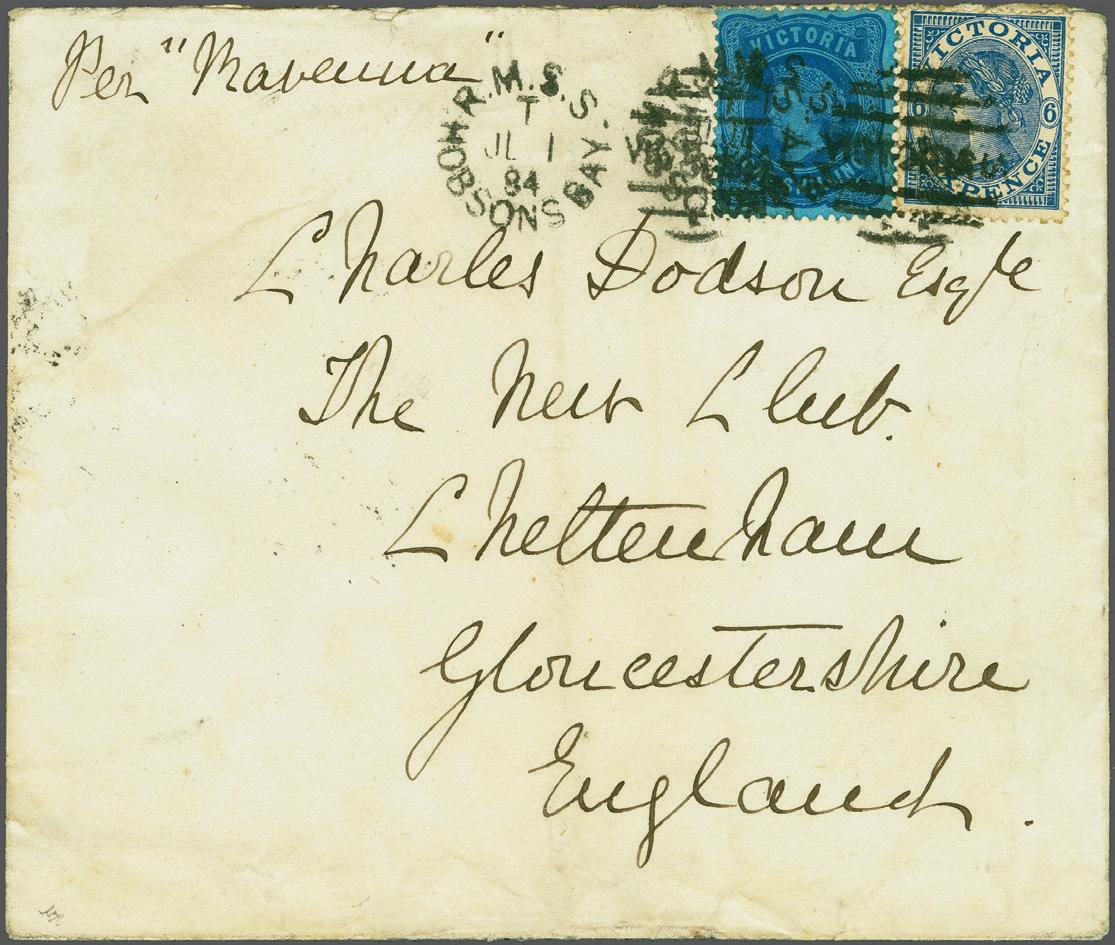 Per "Ravenna"
R.M.S.S.
T
JL 1
84
HOBSONS BAY.
VICTORIA
VICTORIA
6
6
SIXPENCE
Charles Dodson Esqre
The New Club.
Cheltenham
Gloucestershire
England.